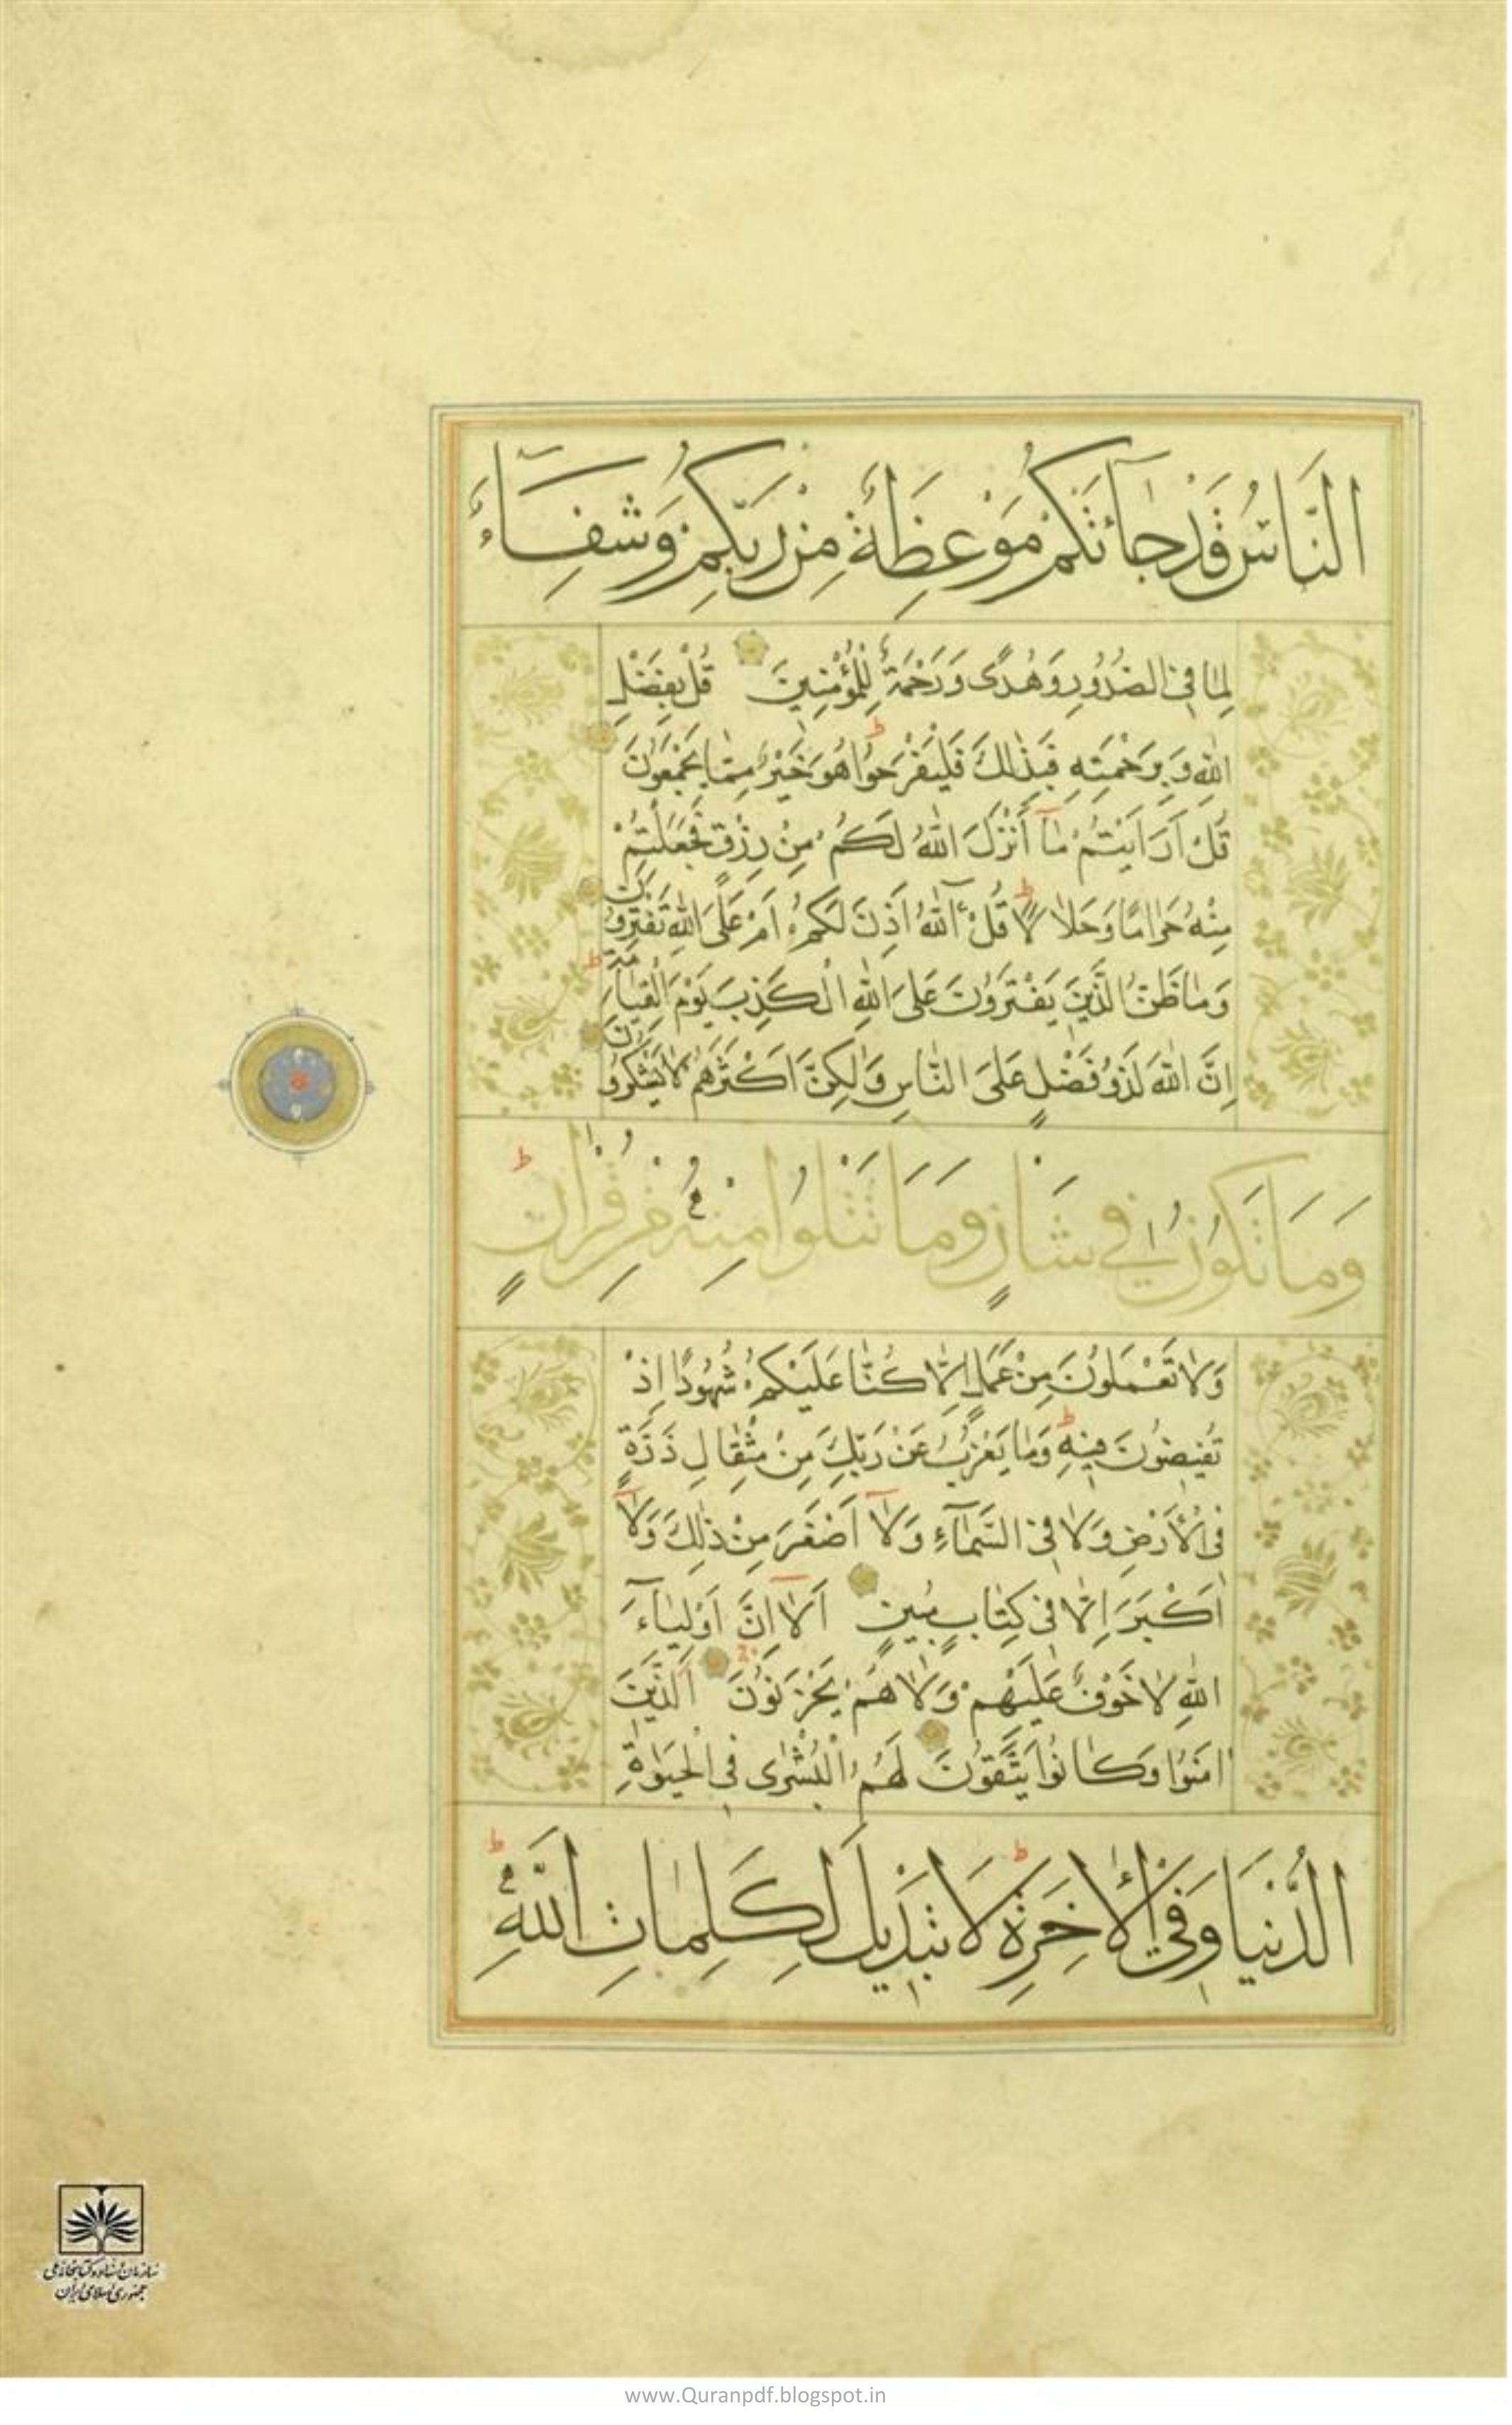 النَّاسُ قَدْ جَآئَتْكُمْ مَوْعِظَةٌ مِنْ رَبِّكُمْ وَشِفَآءٌ
لِمَا فِي الصُّدُورِ وَهُدًى وَرَحْمَةٌ لِلْمُؤْمِنِينَ قُلْ بِفَضْلِ
اللهِ وَبِرَحْمَتِهِ فَبِذٰلِكَ فَلْيَفْرَحُوا ط هُوَ خَيْرٌ مِمَّا يَجْمَعُونَ
قُلْ اَرَاَيْتُمْ مَآ أَنْزَلَ اللهُ لَكُمْ مِنْ رِزْقٍ فَجَعَلْتُمْ
مِنْهُ حَرَامًا وَحَلَالًا ط قُلْ ءٰٓاللهُ اَذِنَ لَكُمْ اَمْ عَلَى اللهِ تَفْتَرُونَ
وَمَا ظَنُّ الَّذِينَ يَفْتَرُونَ عَلَى اللهِ الْكَذِبَ يَوْمَ الْقِيَامَةِ ط
اِنَّ اللهَ لَذُو فَضْلٍ عَلَى النَّاسِ وَلٰكِنَّ اَكْثَرَهُمْ لَا يَشْكُرُونَ
وَمَا تَكُونُ فِي شَأْنٍ وَمَا تَتْلُوا مِنْهُ مِنْ قُرْاٰنٍ ط
وَلَا تَعْمَلُونَ مِنْ عَمَلٍ اِلَّا كُنَّا عَلَيْكُمْ شُهُودًا اِذْ
تُفِيضُونَ فِيهِ ط وَمَا يَعْزُبُ عَنْ رَبِّكَ مِنْ مِثْقَالِ ذَرَّةٍ
فِي الْأَرْضِ وَلَا فِي السَّمَآءِ وَلَآ اَصْغَرَ مِنْ ذٰلِكَ وَلَآ
اَكْبَرَ اِلَّا فِي كِتَابٍ مُبِينٍ اَلَآ اِنَّ اَوْلِيَآءَ
اللهِ لَا خَوْفٌ عَلَيْهِمْ وَلَا هُمْ يَحْزَنُونَ اَلَّذِينَ
اٰمَنُوا وَكَانُوا يَتَّقُونَ لَهُمُ الْبُشْرٰى فِي الْحَيٰوةِ
الدُّنْيَا وَفِي الْأٰخِرَةِ ط لَا تَبْدِيلَ لِكَلِمَاتِ اللهِ ط
سازمان اسناد و کتابخانه ملی
جمهوری اسلامی ایران
www.Quranpdf.blogspot.in